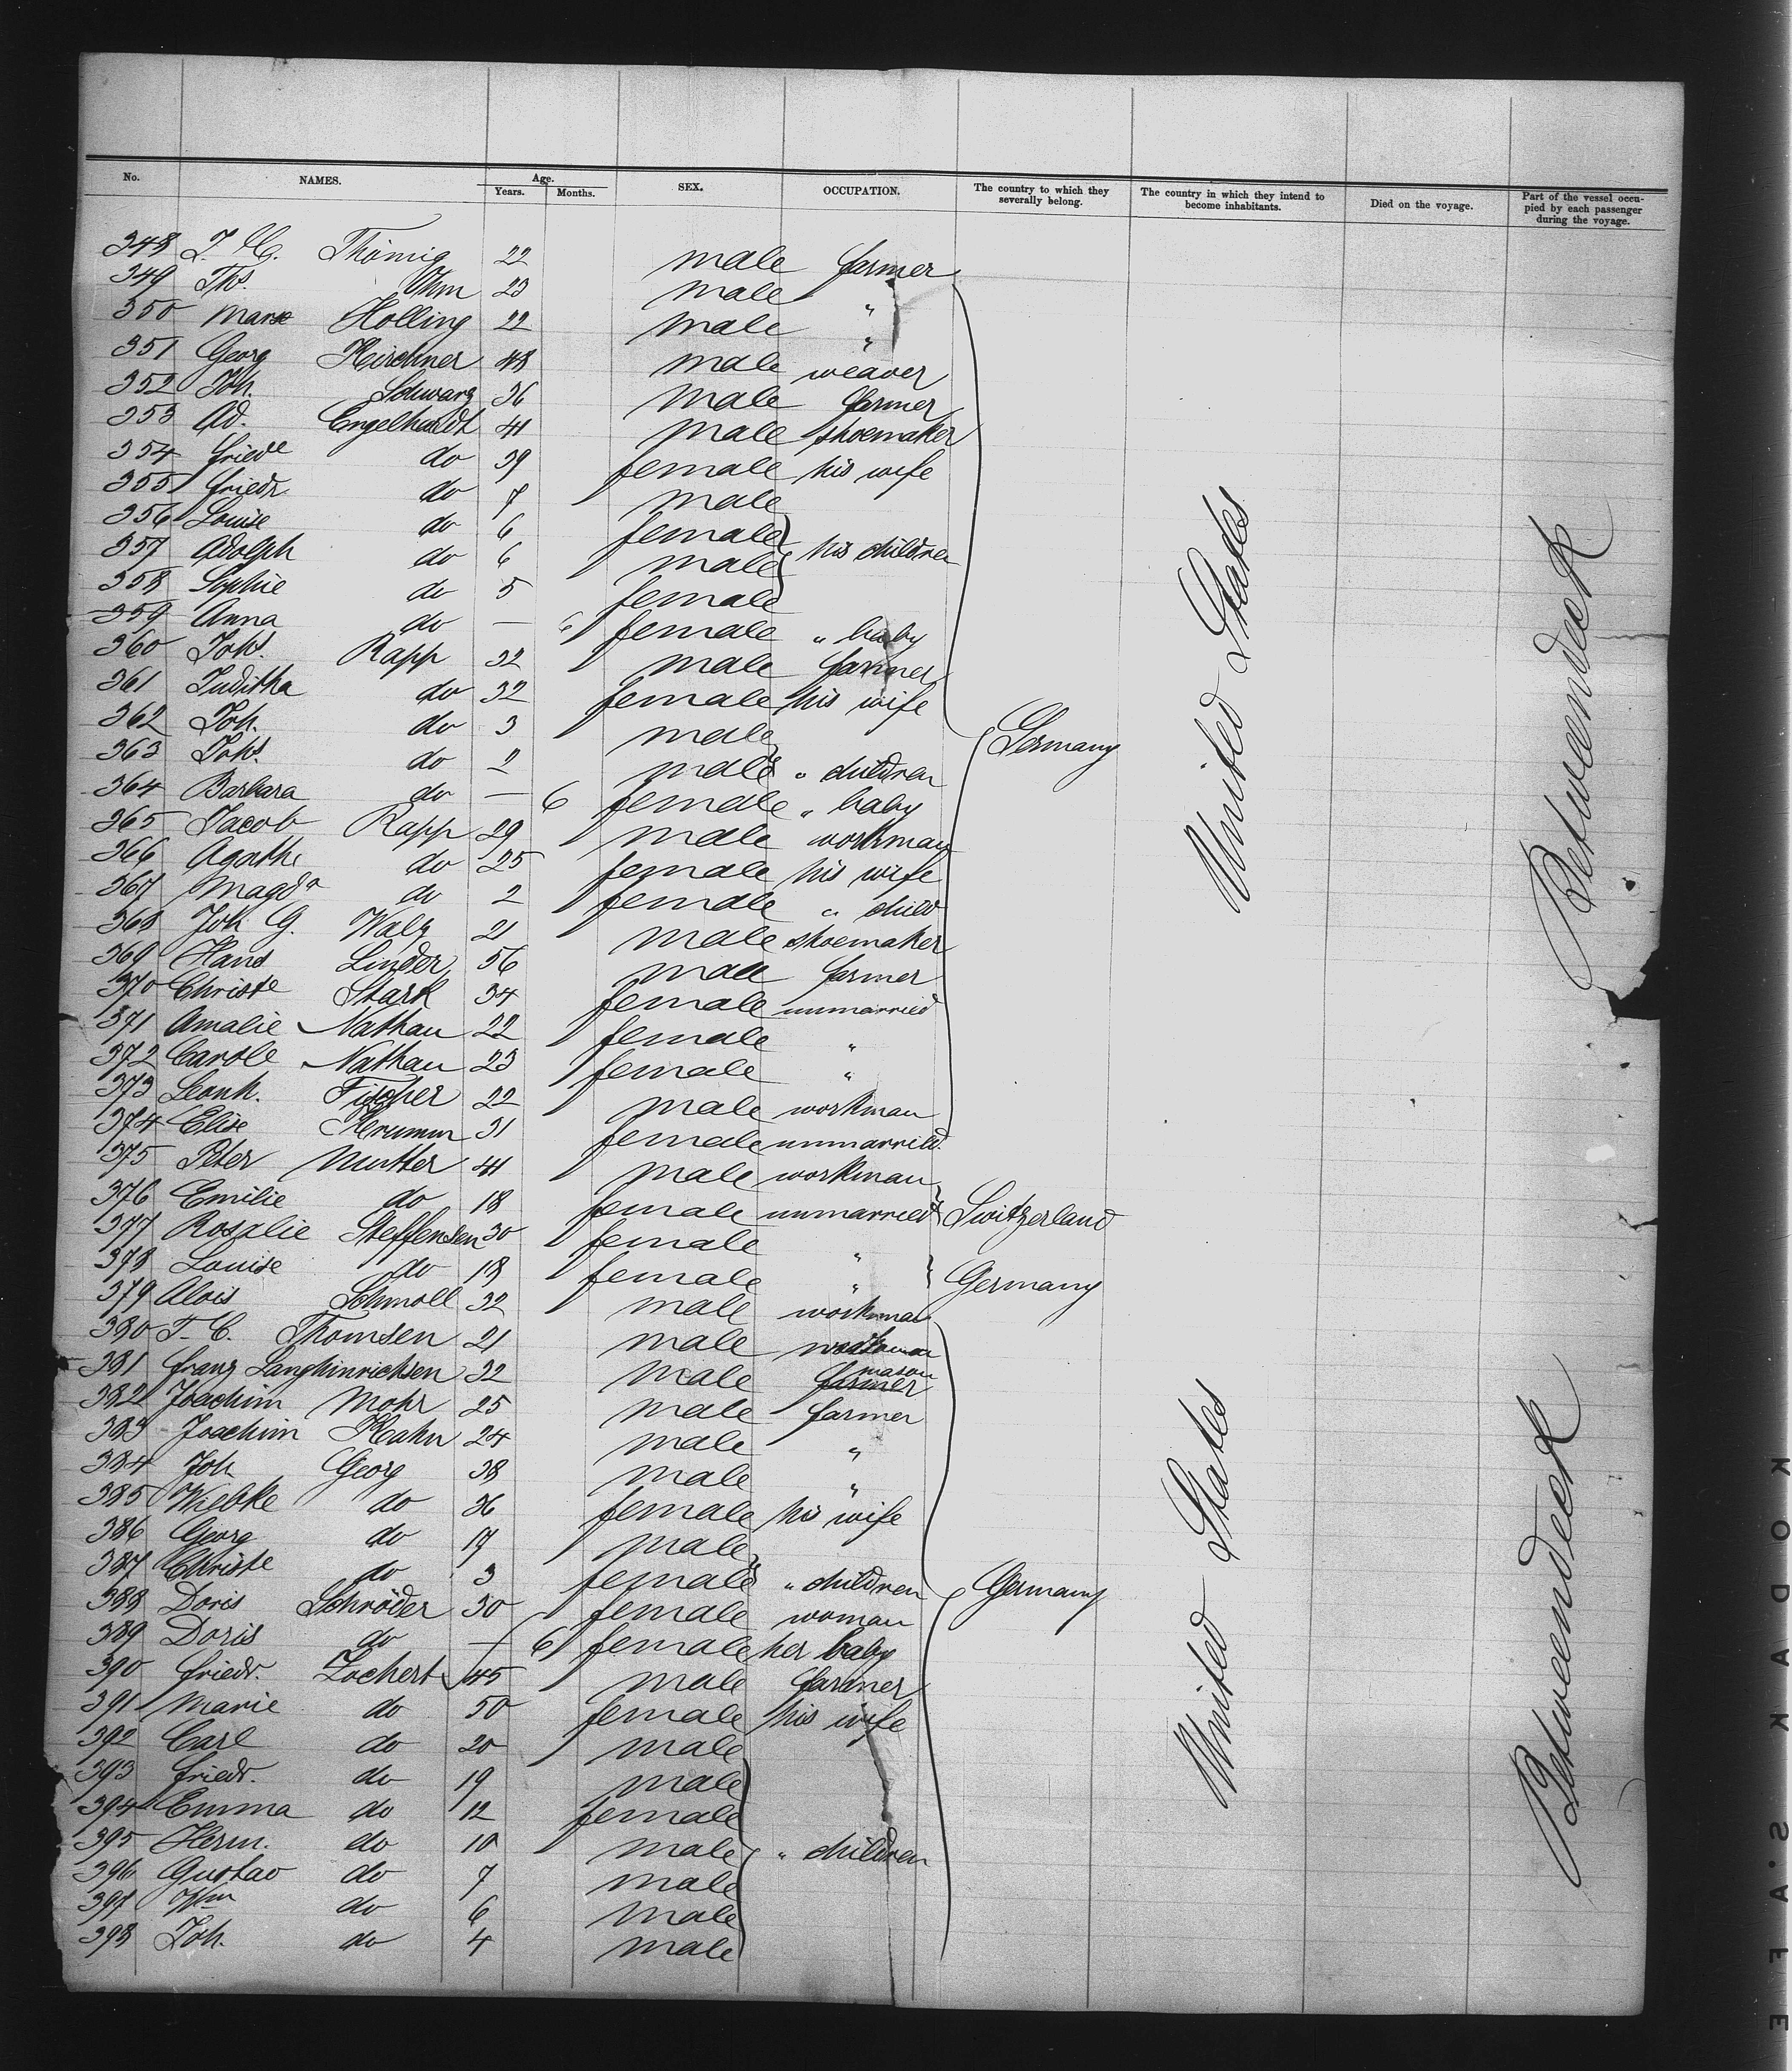 No. NAMES. Age. Years. Months. SEX. OCCUPATION. The country to which they severally belong. The country in which they intend to become inhabitants. Died on the voyage. Part of the vessel occupied by each passenger during the voyage.
348 Thömig 22 male farmer
349 Ths. Ohm 23 male "
350 Holling 22 male "
351 Georg Kirchner 48 male weaver
352 Joh. Schwarz 36 male farmer
353 Ad. Engelhardt 41 male shoemaker
354 Friede do 39 female his wife
355 Friedr. do 7 male
356 Louise do 6 female
357 Adolph do 6 male his children
358 Sophie do 5 female
359 Anna do — 6 female " baby
360 Johs. Rapp 32 male farmer
361 Juditha do 32 female his wife
362 Joh. do 3 male Germany
363 Johs. do 2 male " children
364 Barbara do — 6 female " baby
365 Jacob Rapp 29 male workman
366 Agathe do 25 female his wife
367 Magda do 2 female " child
368 Joh G. Walz 21 male shoemaker
369 Hans Linder 56 male farmer
370 Christe Stark 34 female unmarried
371 Amalie Nathan 22 female "
372 Carole Nathan 23 female "
373 Leonh. Fischer 22 male workman
374 Elise Krumm 31 female unmarried
375 Peter Mutter 41 male workman
376 Emilie do 18 female unmarried Switzerland
377 Rosalie Steffensen 30 female "
378 Louise do 18 female " Germany
379 Alois Schmoll 32 male workman
380 T. C. Thomsen 21 male workman
381 Franz Langhinrichsen 32 male mason farmer
382 Joachim Mohr 25 male farmer
383 Joachim Kahn 24 male "
384 Joh Georg 38 male "
385 Wiebke do 36 female his wife
386 Georg do 17 male
387 Christe do 3 female " children Germany
388 Doris Schröder 30 female woman
389 Doris do — 6 female her baby
390 Friedr. Zochert 45 male farmer
391 Marie do 50 female his wife
392 Carl do 20 male
393 Friedr. do 19 male
394 Emma do 12 female
395 Herm. do 10 male " children
396 Gustav do 7 male
397 Wm do 6 male
398 Joh. do 4 male
United States
Betweendeck
United States
Betweendeck
KODAK S.A.F.E